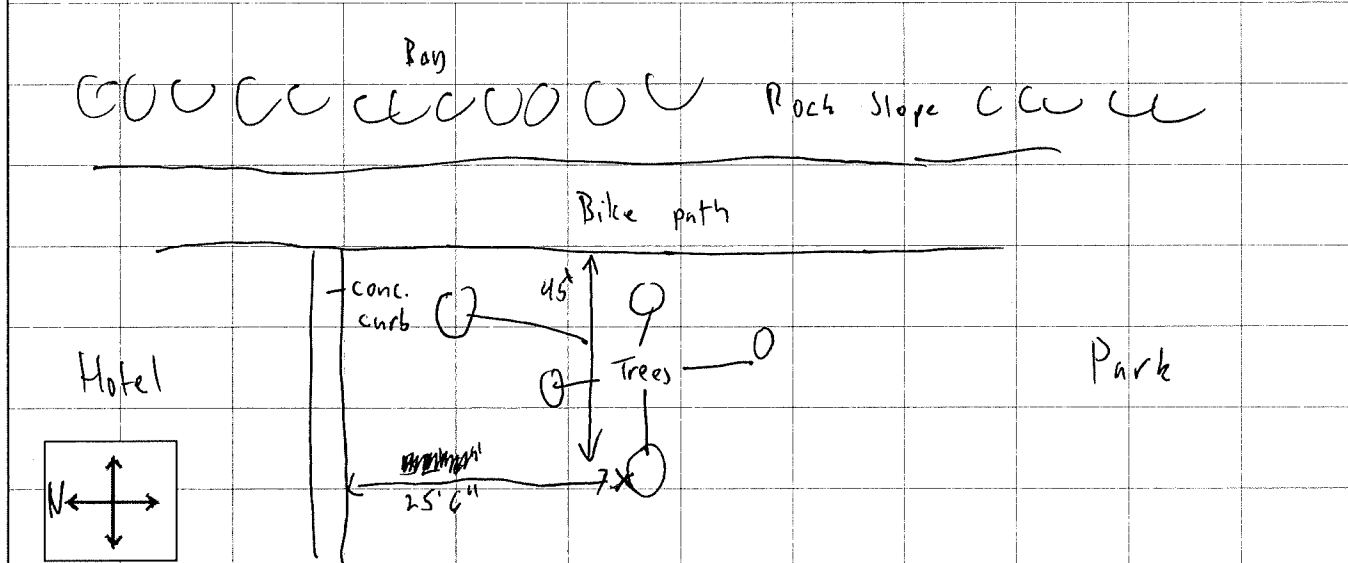 Bay
Rock Slope
Bike path
conc.
curb
45'
Trees
Hotel
Park
25' 6"
N